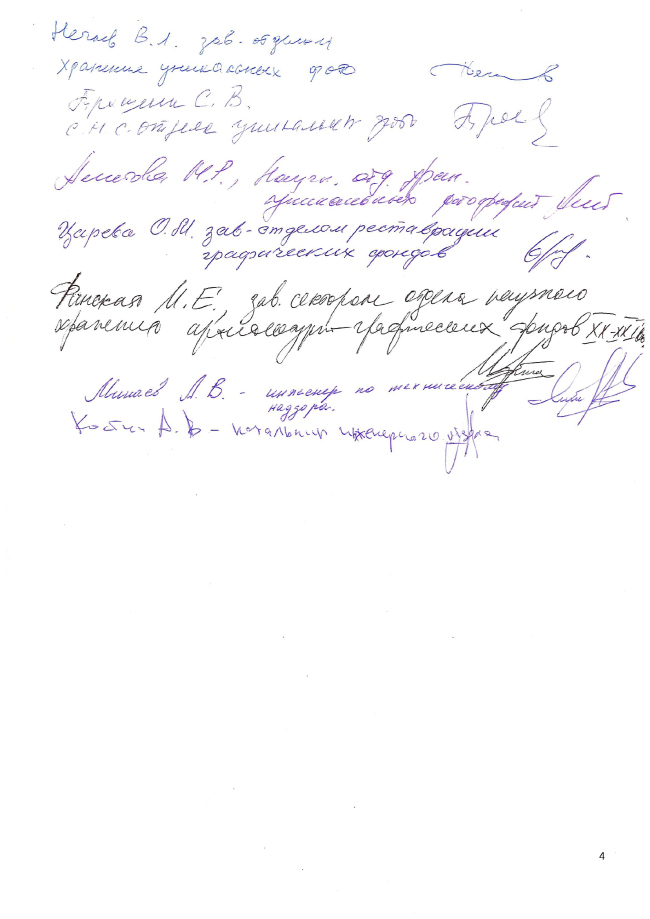 Нечаев В.Л. зав. отделом
хранения уникальных фото
С. В.
с.н.с. отдела уникальных фото
М.Р., Научн. отд. хран.
уникальных фотографий
Царева О.М. зав-отделом реставрации
графических фондов
Финская М.Е. зав. сектором отдела научного
хранения архитектурно-графических фондов XX-XXI вв.
Минаев А.В. - инженер по техническому
надзору.
Костин А.В - начальник инженерного отдела
4